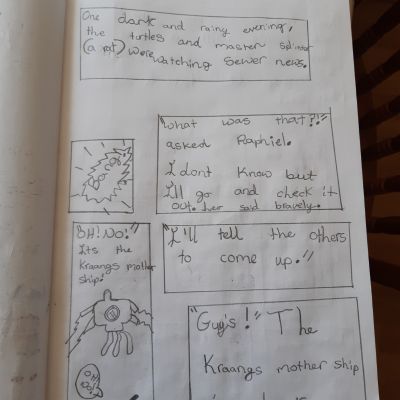 One dark and rainy evening,
the turtles and master splintor
(a rat) were watching sewer news.
"What was that?!"
asked Raphiel.
I dont know but
I'll go and check it
out. Leo said bravely.
OH! No!"
Its the
Kraangs mother
ship!
"I'll tell the others
to come up."
"Guy's!" The
Kraangs mother ship